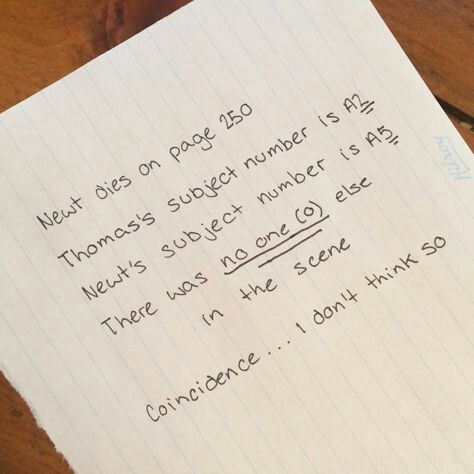 Newt dies on page 250
Thomas's subject number is A2
Newt's subject number is A5
There was no one (0) else
in the scene
Coincidence... I don't think so